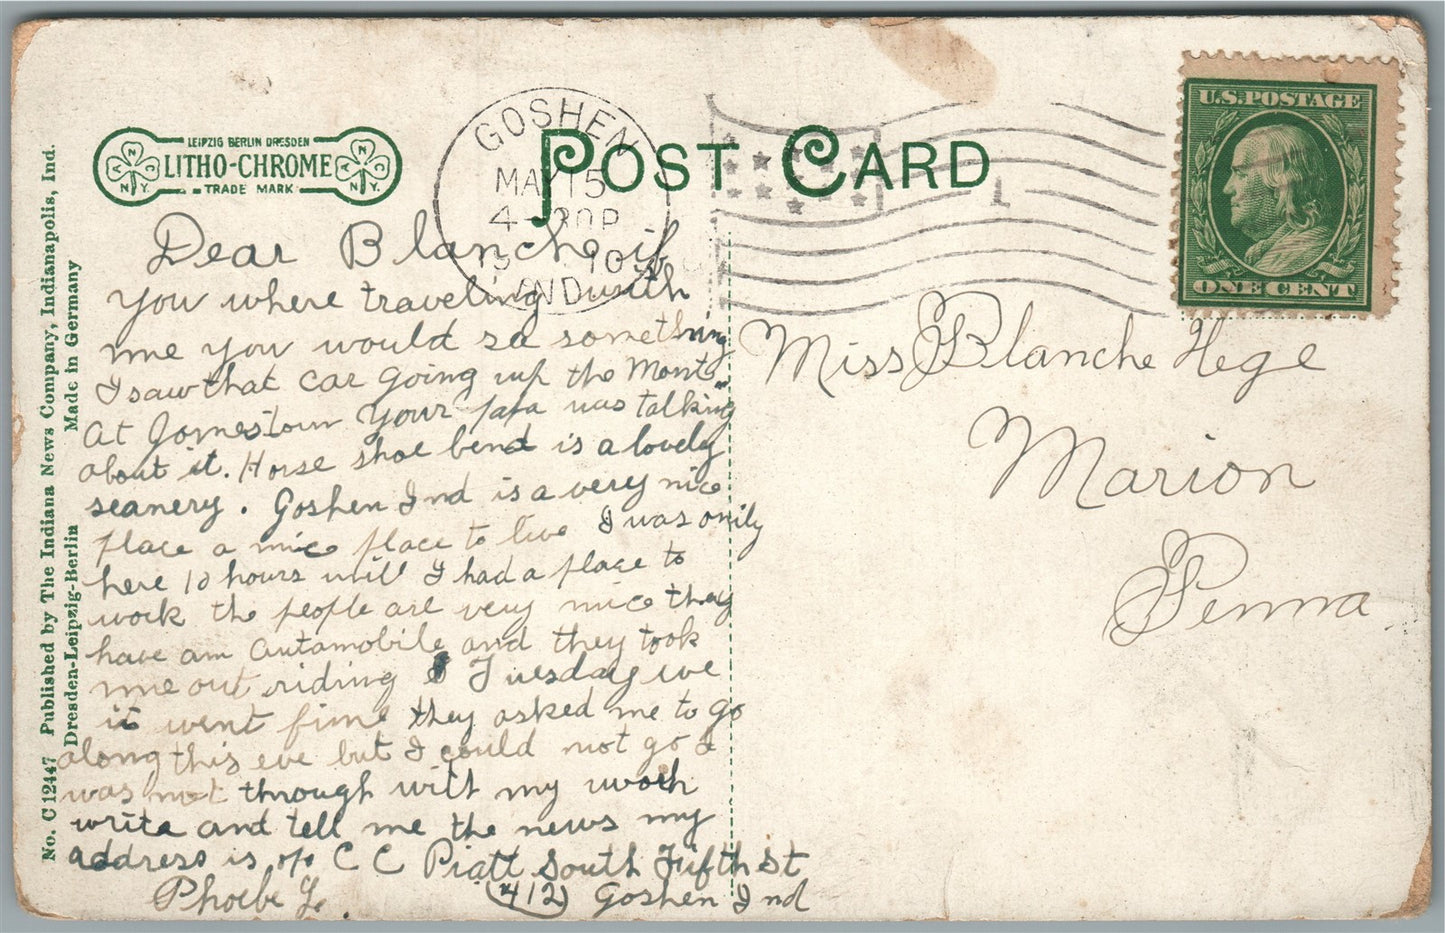 LEIPZIG BERLIN DRESDEN
LITHO-CHROME
TRADE MARK
POST CARD
GOSHEN
MAY 15
4-30P
1910
IND.
1
U.S. POSTAGE
ONE CENT
No. C 12447 Published by The Indiana News Company, Indianapolis, Ind.
Dresden-Leipzig-Berlin Made in Germany
Dear Blanche if
you where traveling with
me you would sa something
I saw that car going up the Mont
At Jomestown your papa was talking
about it. Horse shoe bend is a lovely
seanery. Goshen Ind is a very nice
place a nice place to live I was onily
here 10 hours until I had a place to
work the people are very nice they
have an automobile and they took
me out riding Tuesday eve
it went fine they asked me to go
along this eve but I could not go I
was not through witt my work
write and tell me the news my
address is c/o C C Piatt South Fifth St
Phoebe L. (412) Goshen Ind
Miss Blanche Hege
Marion
Penna